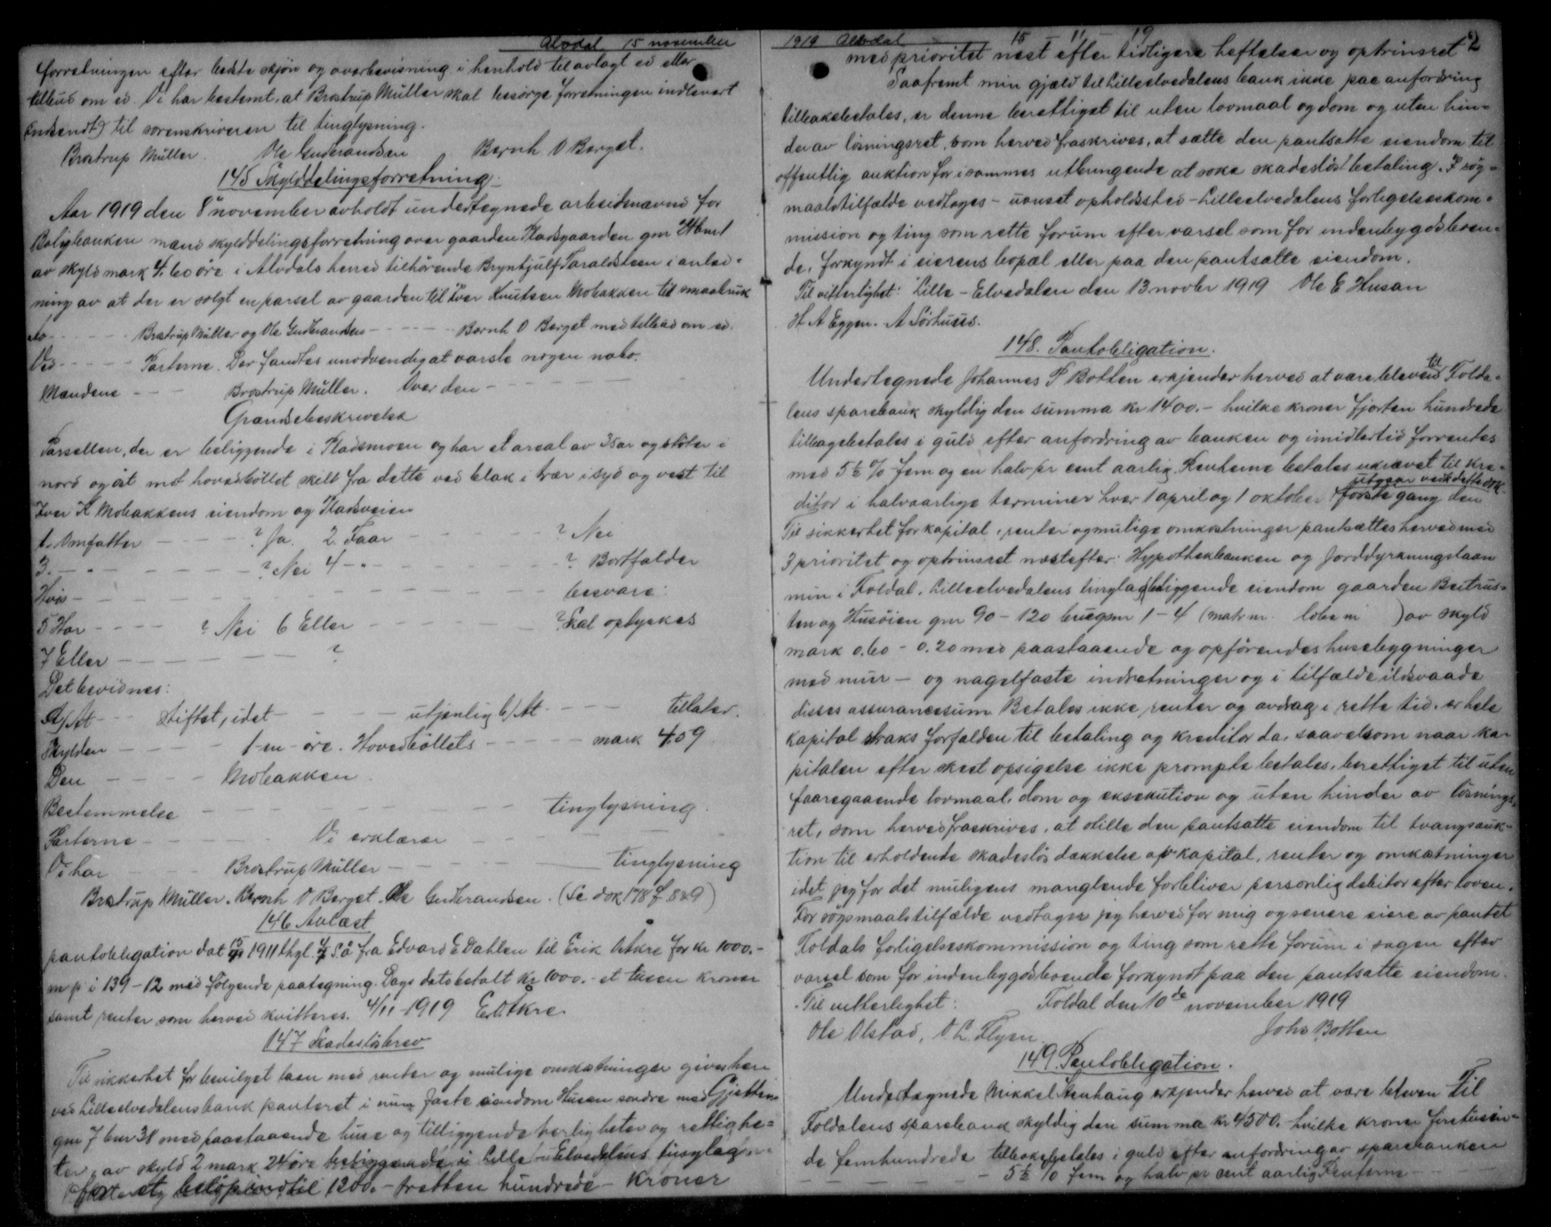 Alvdal 15 november
forretningen efter bedste skjøn og overbevisning i henhold til avlagt ed eller
tilbud om ed. Vi har bestemt, at Brostrup Müller skal besørge forretningen indlevert
(indsendt) til sorenskriveren til tinglysning.
Brostrup Müller. Ole Gudbrandsen Bernh O Berget.
145 Skylddelingsforretning.
Aar 1919 den 8 november avholdt undertegnede arbeidsnævnd for
Boligbanken mænd skylddelingsforretning over gaarden gnr
av skyld mark 4. 60 øre i Alvdals herred tilhørende Brynhjulf i anled-
ning av at der er solgt en parsel av gaarden til Iver Knutsen Mobakken til smaabruk
Brostrup Müller og Ole Gudbrandsen - - - - Bernh O Berget med tilbud om ed.
Ved - - - - Parterne. Der fandtes unødvendig at varsle nogen nabo.
Mændene - - - Brostrup Müller. Over den - - - - - -
Grændsebeskrivelse
Parsellen, der er beliggende i og har et areal av 35 ar og støter i
nord og øst mot hovedbøllet skilt fra dette ved i syd og vest til
Iver K Mobakkens eiendom og
1. Omfatter - - - - ? Ja. 2. Faar - - - - - ? Nei
3. - " - - - - - ? Nei 4 - " - - - - - ? Bortfalder
Hvis - - - - - - - - - - - besvare:
5 Har - - - - ? Nei 6 Eller - - - - - - ? Skal opdyrkes
7 Eller - - - - - - - ?
Det bevidnes:
A/ At - - - Stiftet, idet - - - - utjenlig b/ At - - - - tillater.
Skylden - - - - 1-en øre. Hovedbøllets - - - - mark 4.09
Den - - - - Mobakken.
Bestemmelse - - - - - - - - - - tinglysning.
Parterne - - - - - Vi erklærer - - - - - -
Vi har - - - - Brostrup Müller - - - - - tinglysning
Brostrup Müller. Bernh O Berget. Ole Gudbrandsen. (Se dok 178 f 829)
146 Avlæst
pantobligation dat 1911 thgl. s.å. fra Edvard E Dahlen til Erik Utkre for kr 1000.-
m p i 139 - 12 med følgende paategning. Dags dato betalt kr 1000.- et tusen kroner
samt renter som herved kvitteres. 4/11-1919 E. Utkre
147 Skadesløsbrev
Til sikkerhet for bevilget laan med renter og mulige omkostninger gives her-
ved Lilleelvedalens bank panteret i min faste eiendom Husan søndre med
gnr 7 bnr 38 med paastaaende huse og tilliggende herligheter og rettighe-
ter, av skyld 2 mark 24 øre beliggende i Lille-Elvedalens tinglag
for et beløp indtil 1300.- tretten hundrede - kroner
1919 Alvdal 15 - 11 - 19 2
med prioritet næst efter tidligere heftelser og optrinsret
Saafremt min gjæld til Lilleelvedalens bank ikke paa anfordring
tilbakebetales, er denne berettiget til uten lovmaal og dom og uten hin-
der av løsningsret, som herved fraskrives, at sætte den pantsatte eiendom til
offentlig auktion for i sammes utbringende at søke skadesløs betaling. I søg-
maalstilfælde vedtages - uanset opholdssted - Lilleelvedalens forligelseskom-
mission og ting som rette forum efter varsel som for indenbygdsboen-
de, forkyndt i eierens bopæl eller paa den pantsatte eiendom.
Til vitterlighet: Lille-Elvedalen den 13 novbr 1919 Ole E Husan
H A Eggen. A Sørhuus.
148. Pantobligation.
Undertegnede Johannes P Botten erkjender herved at være bleven til Folda-
lens sparebank skyldig den summa kr 1400.- hvilke kroner fjorten hundrede
tilbagebetales i guld efter anfordring av banken og imidlertid forrentes
med 5½ % fem og en halv pr cent aarlig. Renterne betales ukrævet til kre-
ditor i halvaarlige terminer hver 1 april og 1 oktober første gang den utgaar ved dette dok
Til sikkerhet for kapital, renter og mulige omkostninger pantsættes herved med
3 prioritet og optrinsret næstefter Hypothekbanken og Jorddyrkningslaan
min i Foldal, Lilleelvedalens tinglag beliggende eiendom gaarden
og Husøien gnr 90 - 120 brugsnr 1 - 4 (matr nr løbe nr ) av skyld
mark 0.60 - 0.20 med paastaaende og opførendes husebygninger
med mur - og nagelfaste indretninger og i tilfælde ildsvaade
disses assurancesum. Betales ikke renter og avdrag i rette tid, er hele
kapital straks forfalden til betaling og kreditor da, saavelsom naar ka-
pitalen efter skedt opsigelse ikke prompte betales, berettiget til uten
foregaaende lovmaal, dom og eksekution og uten hinder av løsnings-
ret, som herved fraskrives, at stille den pantsatte eiendom til tvangsauk-
tion til erholdende skadesløs dækkelse av kapital, renter og omkostninger
idet jeg for det muligens manglende forbliver personlig debitor efter loven.
For søgsmaalstilfælde vedtages jeg herved for mig og senere eiere av pantet
Foldals forligelseskommission og ting som rette forum i sagen efter
varsel som for indenbygdsboende forkyndt paa den pantsatte eiendom.
Til vitterlighet: Foldal den 10de november 1919
Ole Olstad, O L Flyen Johs Botten
149. Pantobligation.
Undertegnede Mikkel erkjender herved at være bleven Til
Foldalens sparebank skyldig den summa kr 4500.- hvilke kroner firetusin-
de femhundrede tilbakebetales i guld efter anfordring av sparebanken
- - - - - - - - 5½ % fem og halv pr cent aarlig Renterne - - -